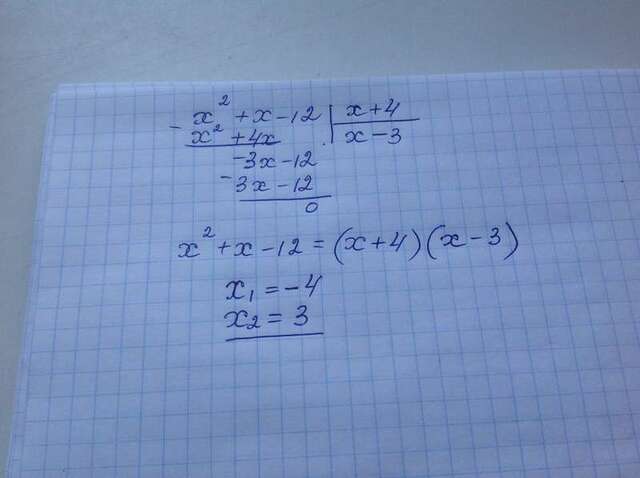 - x² + x - 12 | x + 4
x² + 4x | x - 3
-3x - 12
- 3x - 12
0
x² + x - 12 = (x + 4)(x - 3)
x₁ = -4
x₂ = 3